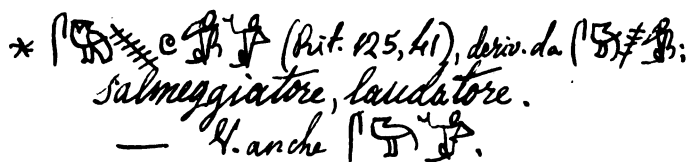 * (Rit. 125, 41), deriv. da ;
salmeggiatore, laudatore.
— V. anche .